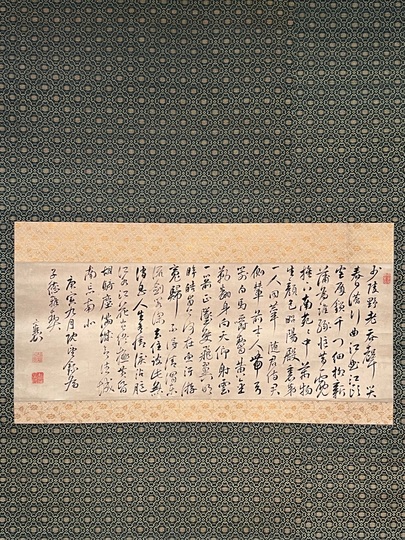 少陵野老吞聲哭
春日潛行曲江曲江頭
宮殿鎖千門細柳新
蒲為誰綠憶昔霓
旌下南苑苑中萬物
生顏色昭陽殿裏第
一人同輦隨君侍君
側輦前才人帶弓
箭白馬嚼齧黃金
勒翻身向天仰射雲
一箭正墜雙飛翼明
眸皓齒今何在血污遊
魂歸不得清渭東
流劍閣深去住彼此無
消息人生有情淚沾臆
江水江花豈終極黃昏
胡騎塵滿城欲往城
南忘南北
庚寅九月為
子德雅契